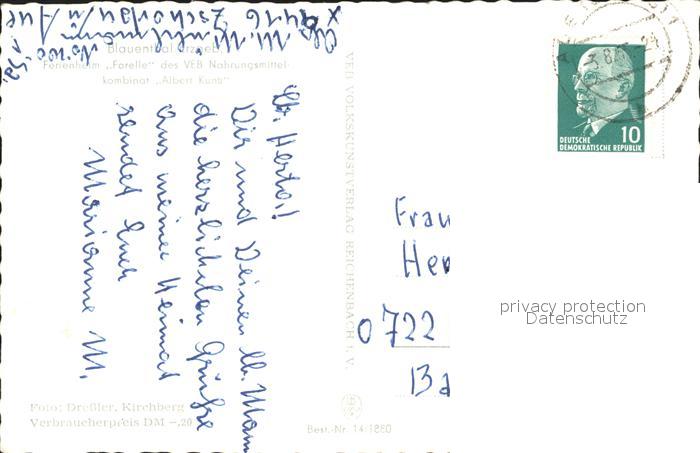 Blauenthal Erzgeb.
Ferienheim „Forelle“ des VEB Nahrungsmittel-
kombinat „Albert Kuntz“
Lb. Herta!
Dir und Deinen lb. Mann
die herzlichsten Grüße
aus meiner Heimat
sendet Euch
Marianne M.
Foto: Dreßler, Kirchberg
Verbraucherpreis DM -,20
VEB VOLKSKUNSTVERLAG REICHENBACH i. V.
Best.-Nr. 14/1880
10
DEUTSCHE
DEMOKRATISCHE REPUBLIK
Frau
Her
0722
Ba
privacy protection
Datenschutz